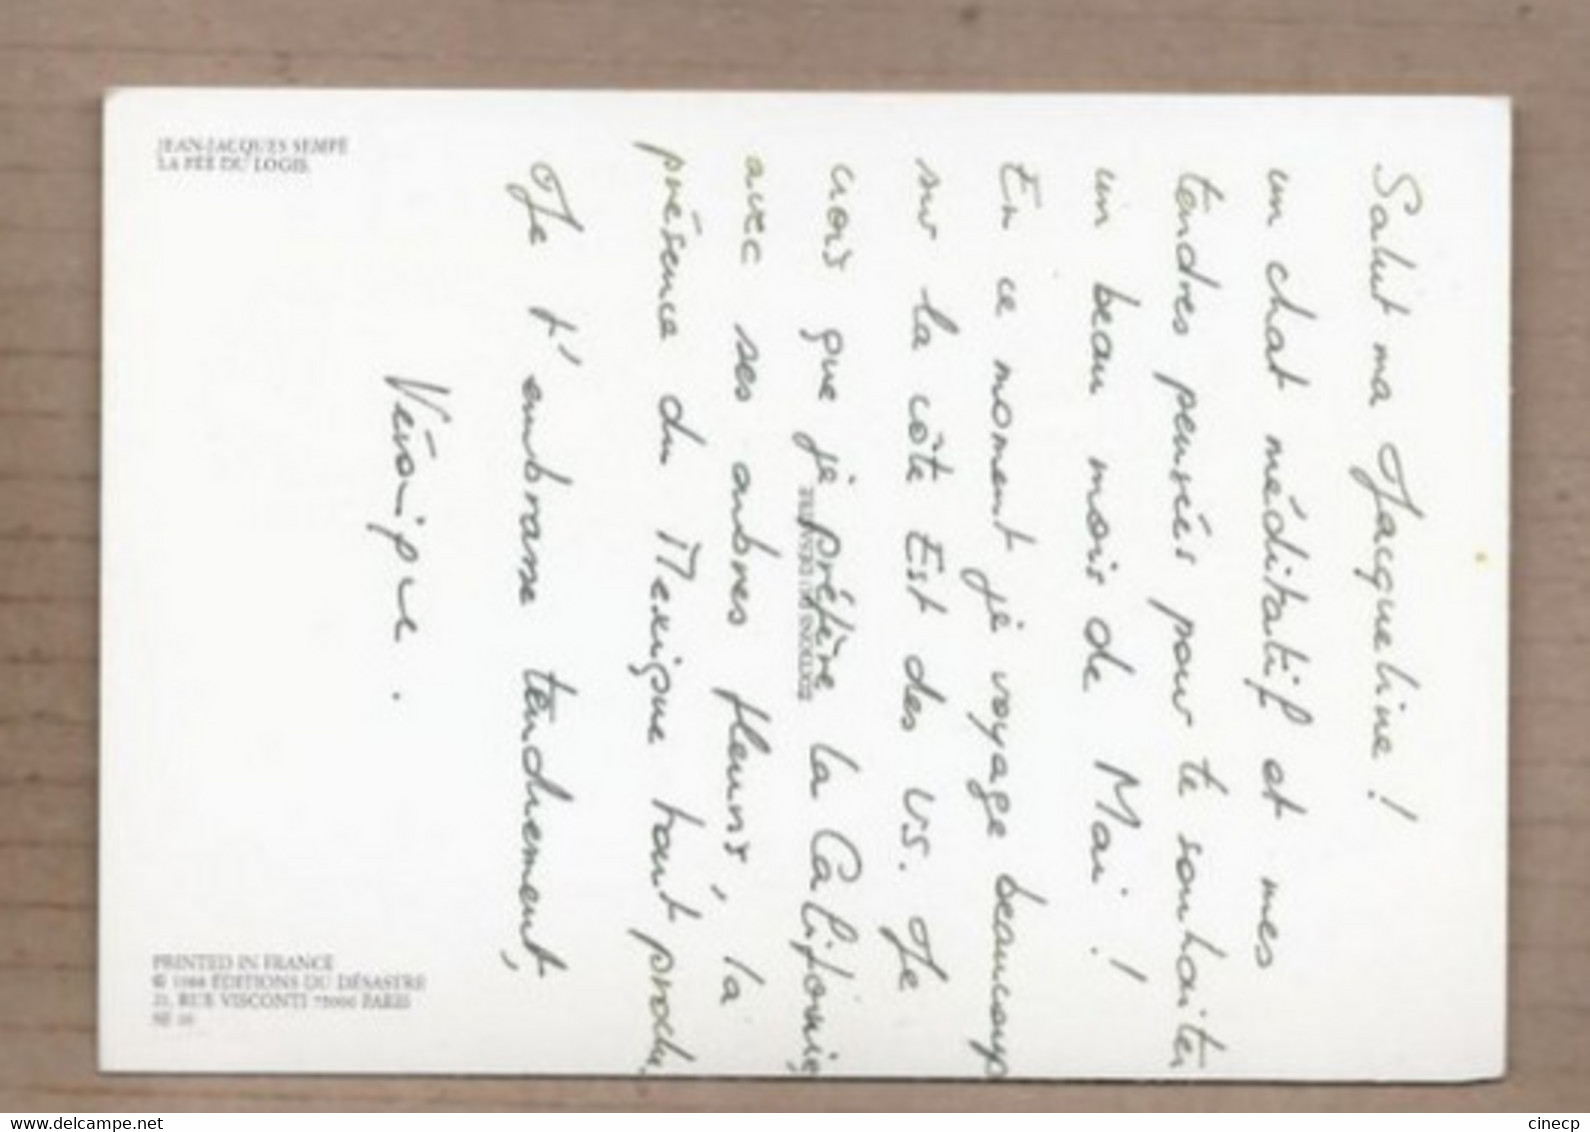 JEAN-JACQUES SEMPÉ
LA FÉE DU LOGIS.
Salut ma Jacqueline !
un chat méditatif et mes
tendres pensées pour te souhaiter
un beau mois de Mai !
En ce moment je voyage beaucoup
sur la côte Est des US. Je
crois que je préfère la Californie,
avec ses arbres fleuris, la
présence du Mexique tout proche,
Je t'embrasse tendrement,
Véronique.
EDITIONS DU DESASTRE
PRINTED IN FRANCE
© 1988 ÉDITIONS DU DÉSASTRE
21, RUE VISCONTI 75006 PARIS
www.delcampe.net
cinecp